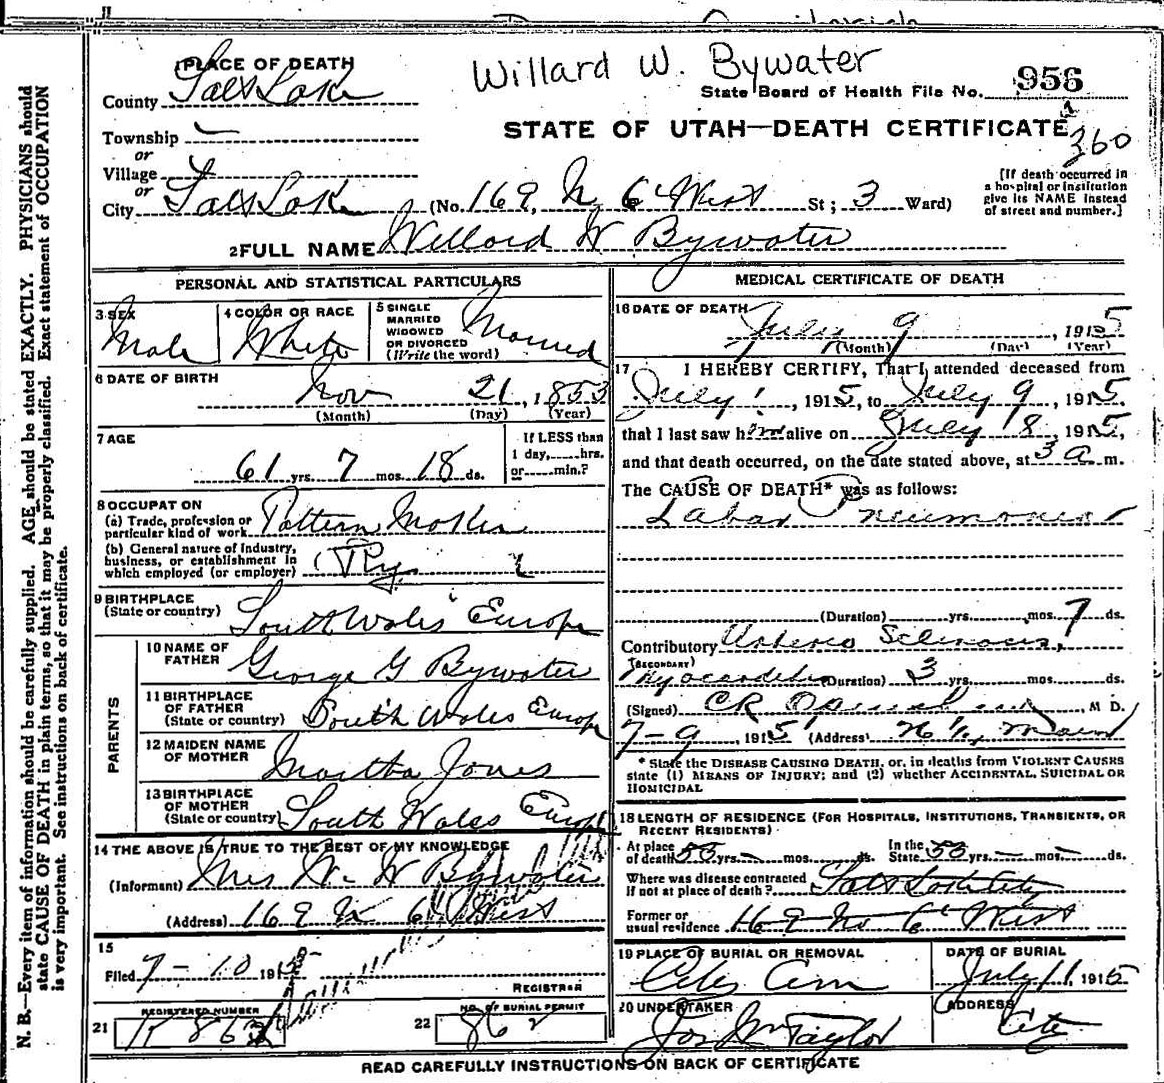 Willard W. Bywater
PLACE OF DEATH
County Salt Lake
State Board of Health File No. 956
Township
STATE OF UTAH—DEATH CERTIFICATE
360
or
Village
or
City Salt Lake (No. 169, N 6th West St; 3 Ward)
[If death occurred in
a hospital or institution
give its NAME instead
of street and number.]
2 FULL NAME Willard W Bywater
PERSONAL AND STATISTICAL PARTICULARS
3 SEX
Male
4 COLOR OR RACE
White
5 SINGLE
MARRIED
WIDOWED
OR DIVORCED
(Write the word)
Married
6 DATE OF BIRTH
Nov 21, 1853
(Month) (Day) (Year)
7 AGE
61 yrs. 7 mos. 18 ds.
If LESS than
1 day,.....hrs.
or.....min.?
8 OCCUPATION
(a) Trade, profession or
particular kind of work Pattern Maker
(b) General nature of industry,
business, or establishment in
which employed (or employer) Ry.
9 BIRTHPLACE
(State or country) South Wales Europe
PARENTS
10 NAME OF
FATHER George G Bywater
11 BIRTHPLACE
OF FATHER
(State or country) South Wales Europe
12 MAIDEN NAME
OF MOTHER Martha Jones
13 BIRTHPLACE
OF MOTHER
(State or country) South Wales Europe
14 THE ABOVE IS TRUE TO THE BEST OF MY KNOWLEDGE
(Informant) Mrs W. W Bywater
(Address) 169 N 6 West
15
Filed 7-10 1915
REGISTRAR
21 REGISTERED NUMBER
22 NO. OF BURIAL PERMIT
862
MEDICAL CERTIFICATE OF DEATH
16 DATE OF DEATH
July 9, 1915
(Month) (Day) (Year)
17 I HEREBY CERTIFY, That I attended deceased from
July 1, 1915, to July 9, 1915,
that I last saw him alive on July 8, 1915,
and that death occurred, on the date stated above, at 3 a m.
The CAUSE OF DEATH* was as follows:
Labar Pneumonia
(Duration) yrs. mos. 7 ds.
Contributory Sclerosis,
(SECONDARY)
Myocarditis (Duration) 3 yrs. mos. ds.
(Signed) CR M D.
7-9, 1915 (Address) Main
* State the DISEASE CAUSING DEATH, or, in deaths from VIOLENT CAUSES
state (1) MEANS OF INJURY; and (2) whether ACCIDENTAL, SUICIDAL OR
HOMICIDAL
18 LENGTH OF RESIDENCE (FOR HOSPITALS, INSTITUTIONS, TRANSIENTS, OR
RECENT RESIDENTS)
At place
of death 53 yrs. — mos. ds.
In the
State 53 yrs. — mos — ds.
Where was disease contracted
if not at place of death? Salt Lake City
Former or
usual residence 169 No 6th West
19 PLACE OF BURIAL OR REMOVAL
City Cem
DATE OF BURIAL
July 11, 1915
20 UNDERTAKER
Jos Wm Taylor
ADDRESS
City
READ CAREFULLY INSTRUCTIONS ON BACK OF CERTIFICATE
N. B.—Every item of information should be carefully supplied. AGE should be stated EXACTLY. PHYSICIANS should
state CAUSE OF DEATH in plain terms, so that it may be properly classified. Exact statement of OCCUPATION
is very important. See instructions on back of certificate.